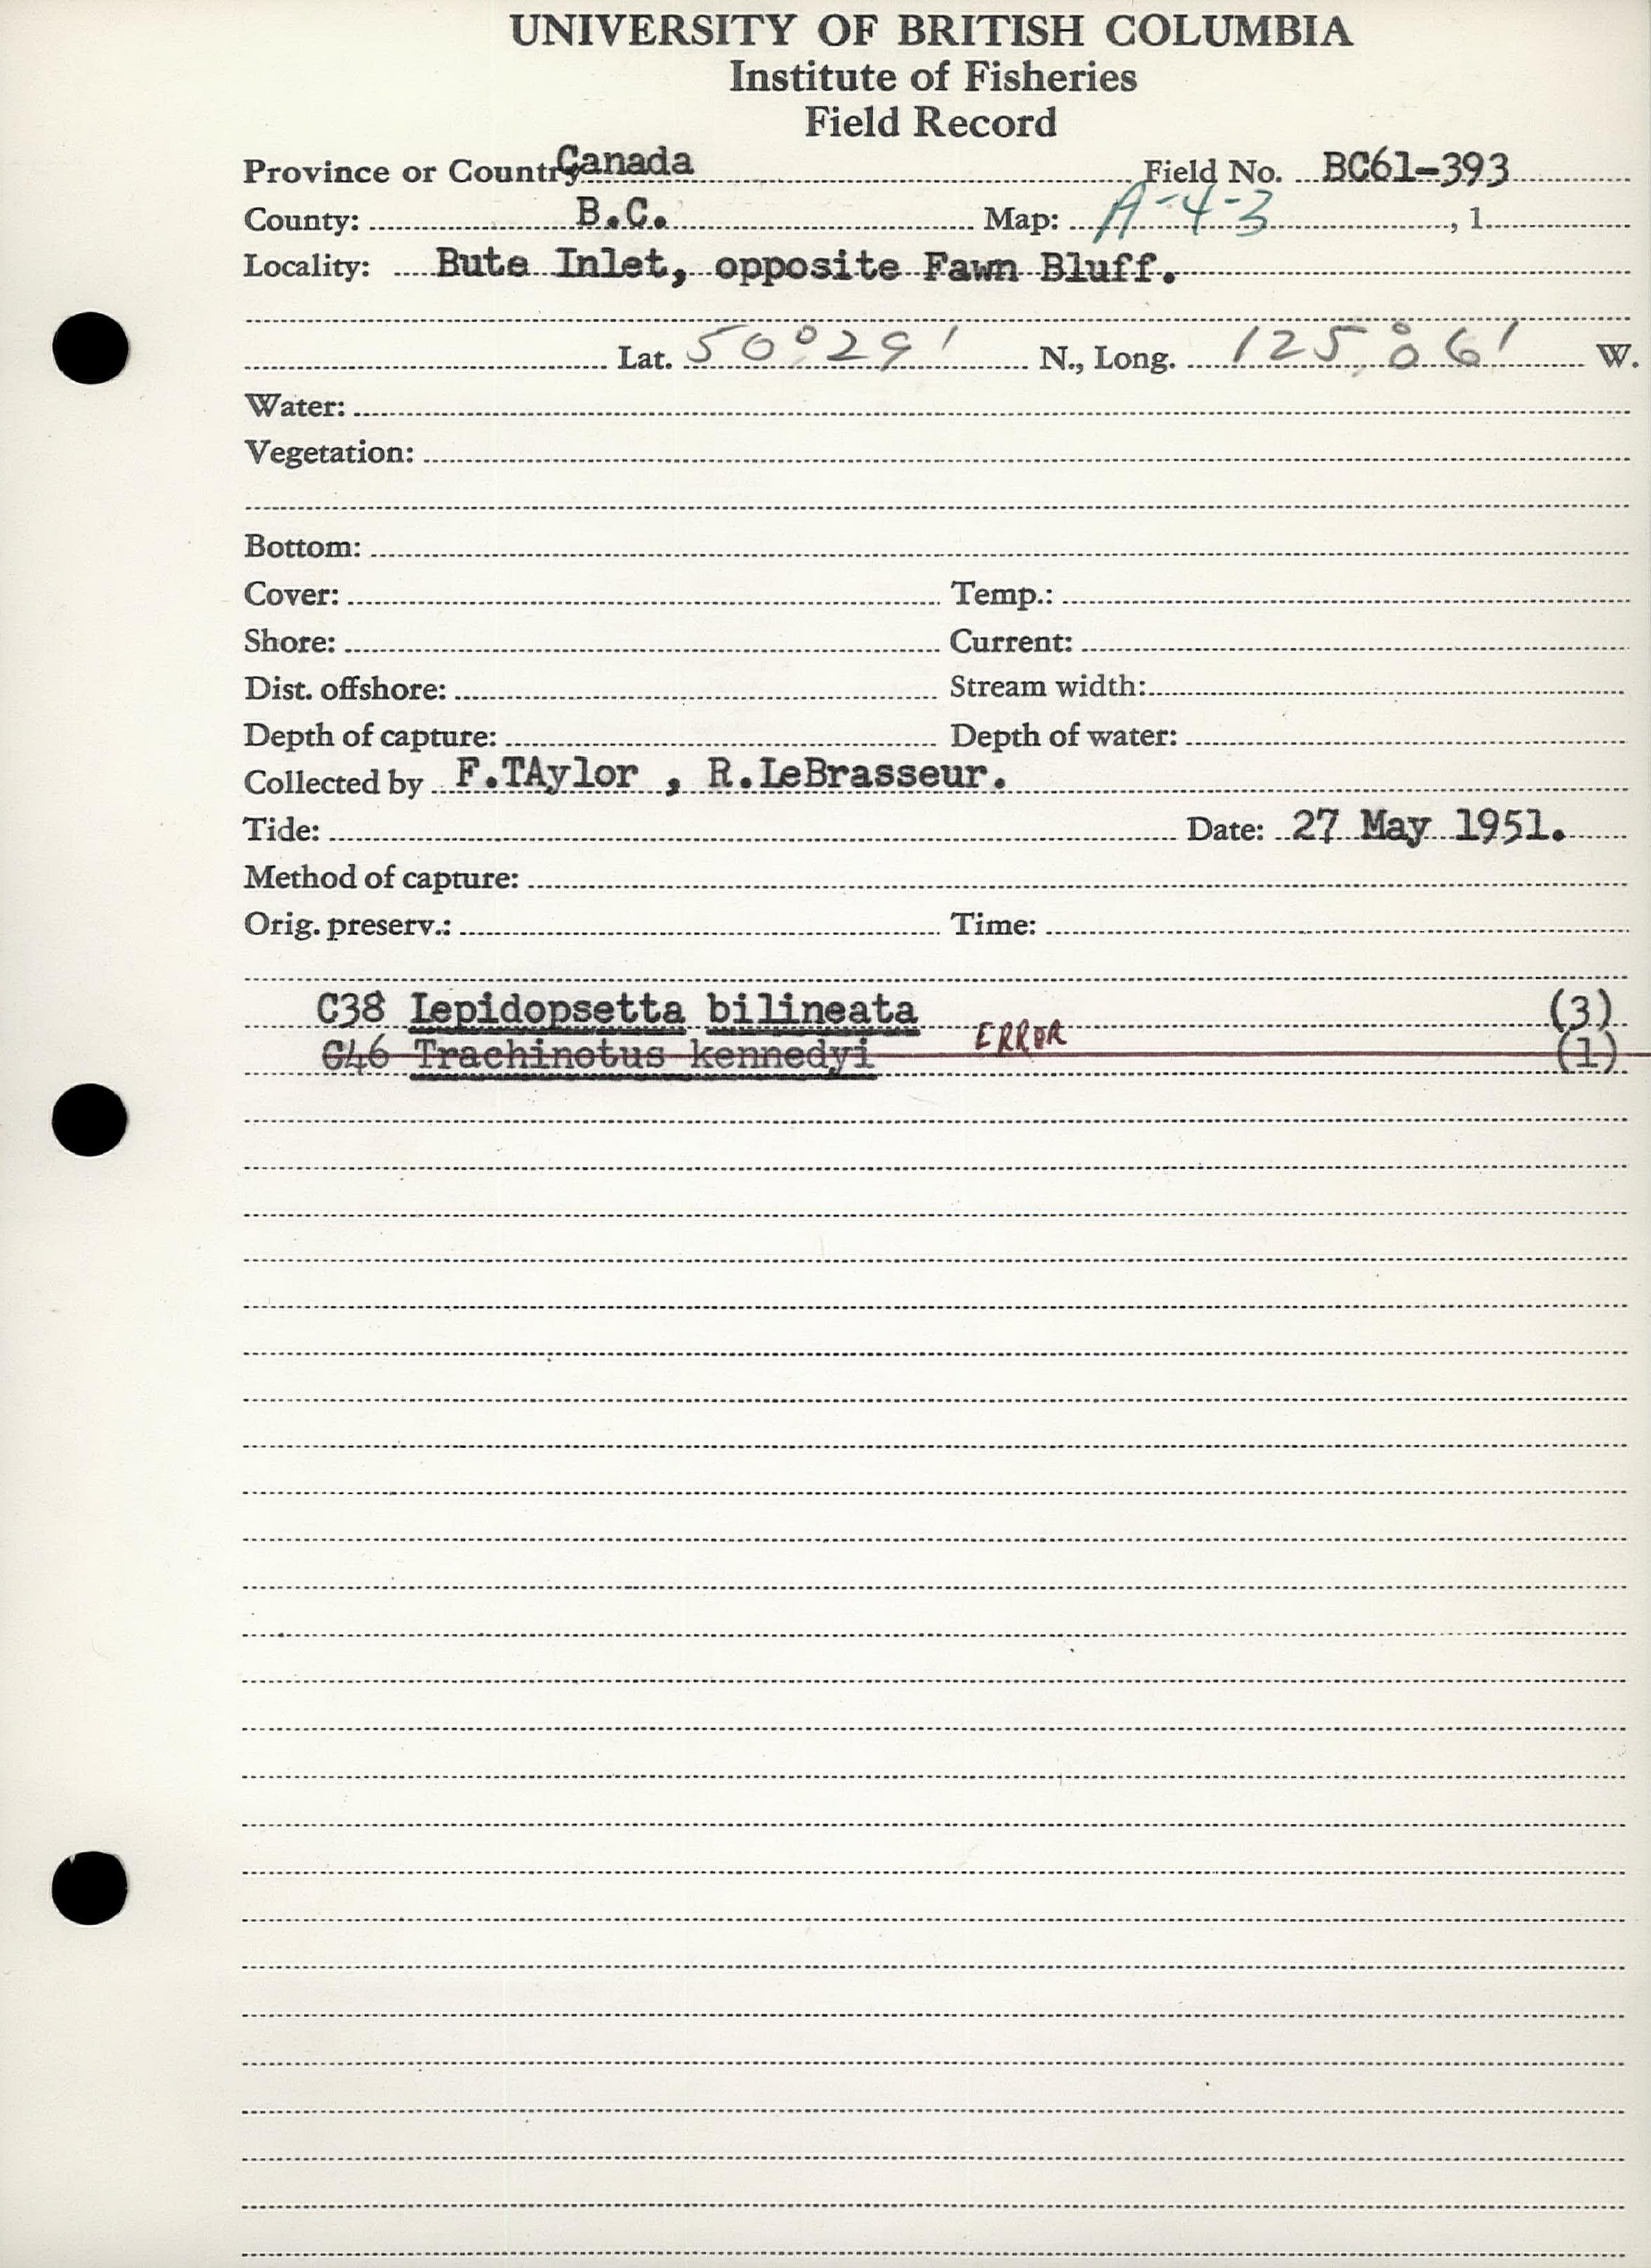 UNIVERSITY OF BRITISH COLUMBIA
Institute of Fisheries
Field Record
Province or Country Canada Field No. BC61-393
County: B.C. Map: A-4-3 , 1
Locality: Bute Inlet, opposite Fawn Bluff.
Lat. 50°29' N., Long. 125°06' W.
Water:
Vegetation:
Bottom:
Cover: Temp.:
Shore: Current:
Dist. offshore: Stream width:
Depth of capture: Depth of water:
Collected by F.TAylor , R.LeBrasseur.
Tide: Date: 27 May 1951.
Method of capture:
Orig. preserv.: Time:
C38 Lepidopsetta bilineata (3)
C46 Trachinotus kennedyi ERROR (1)